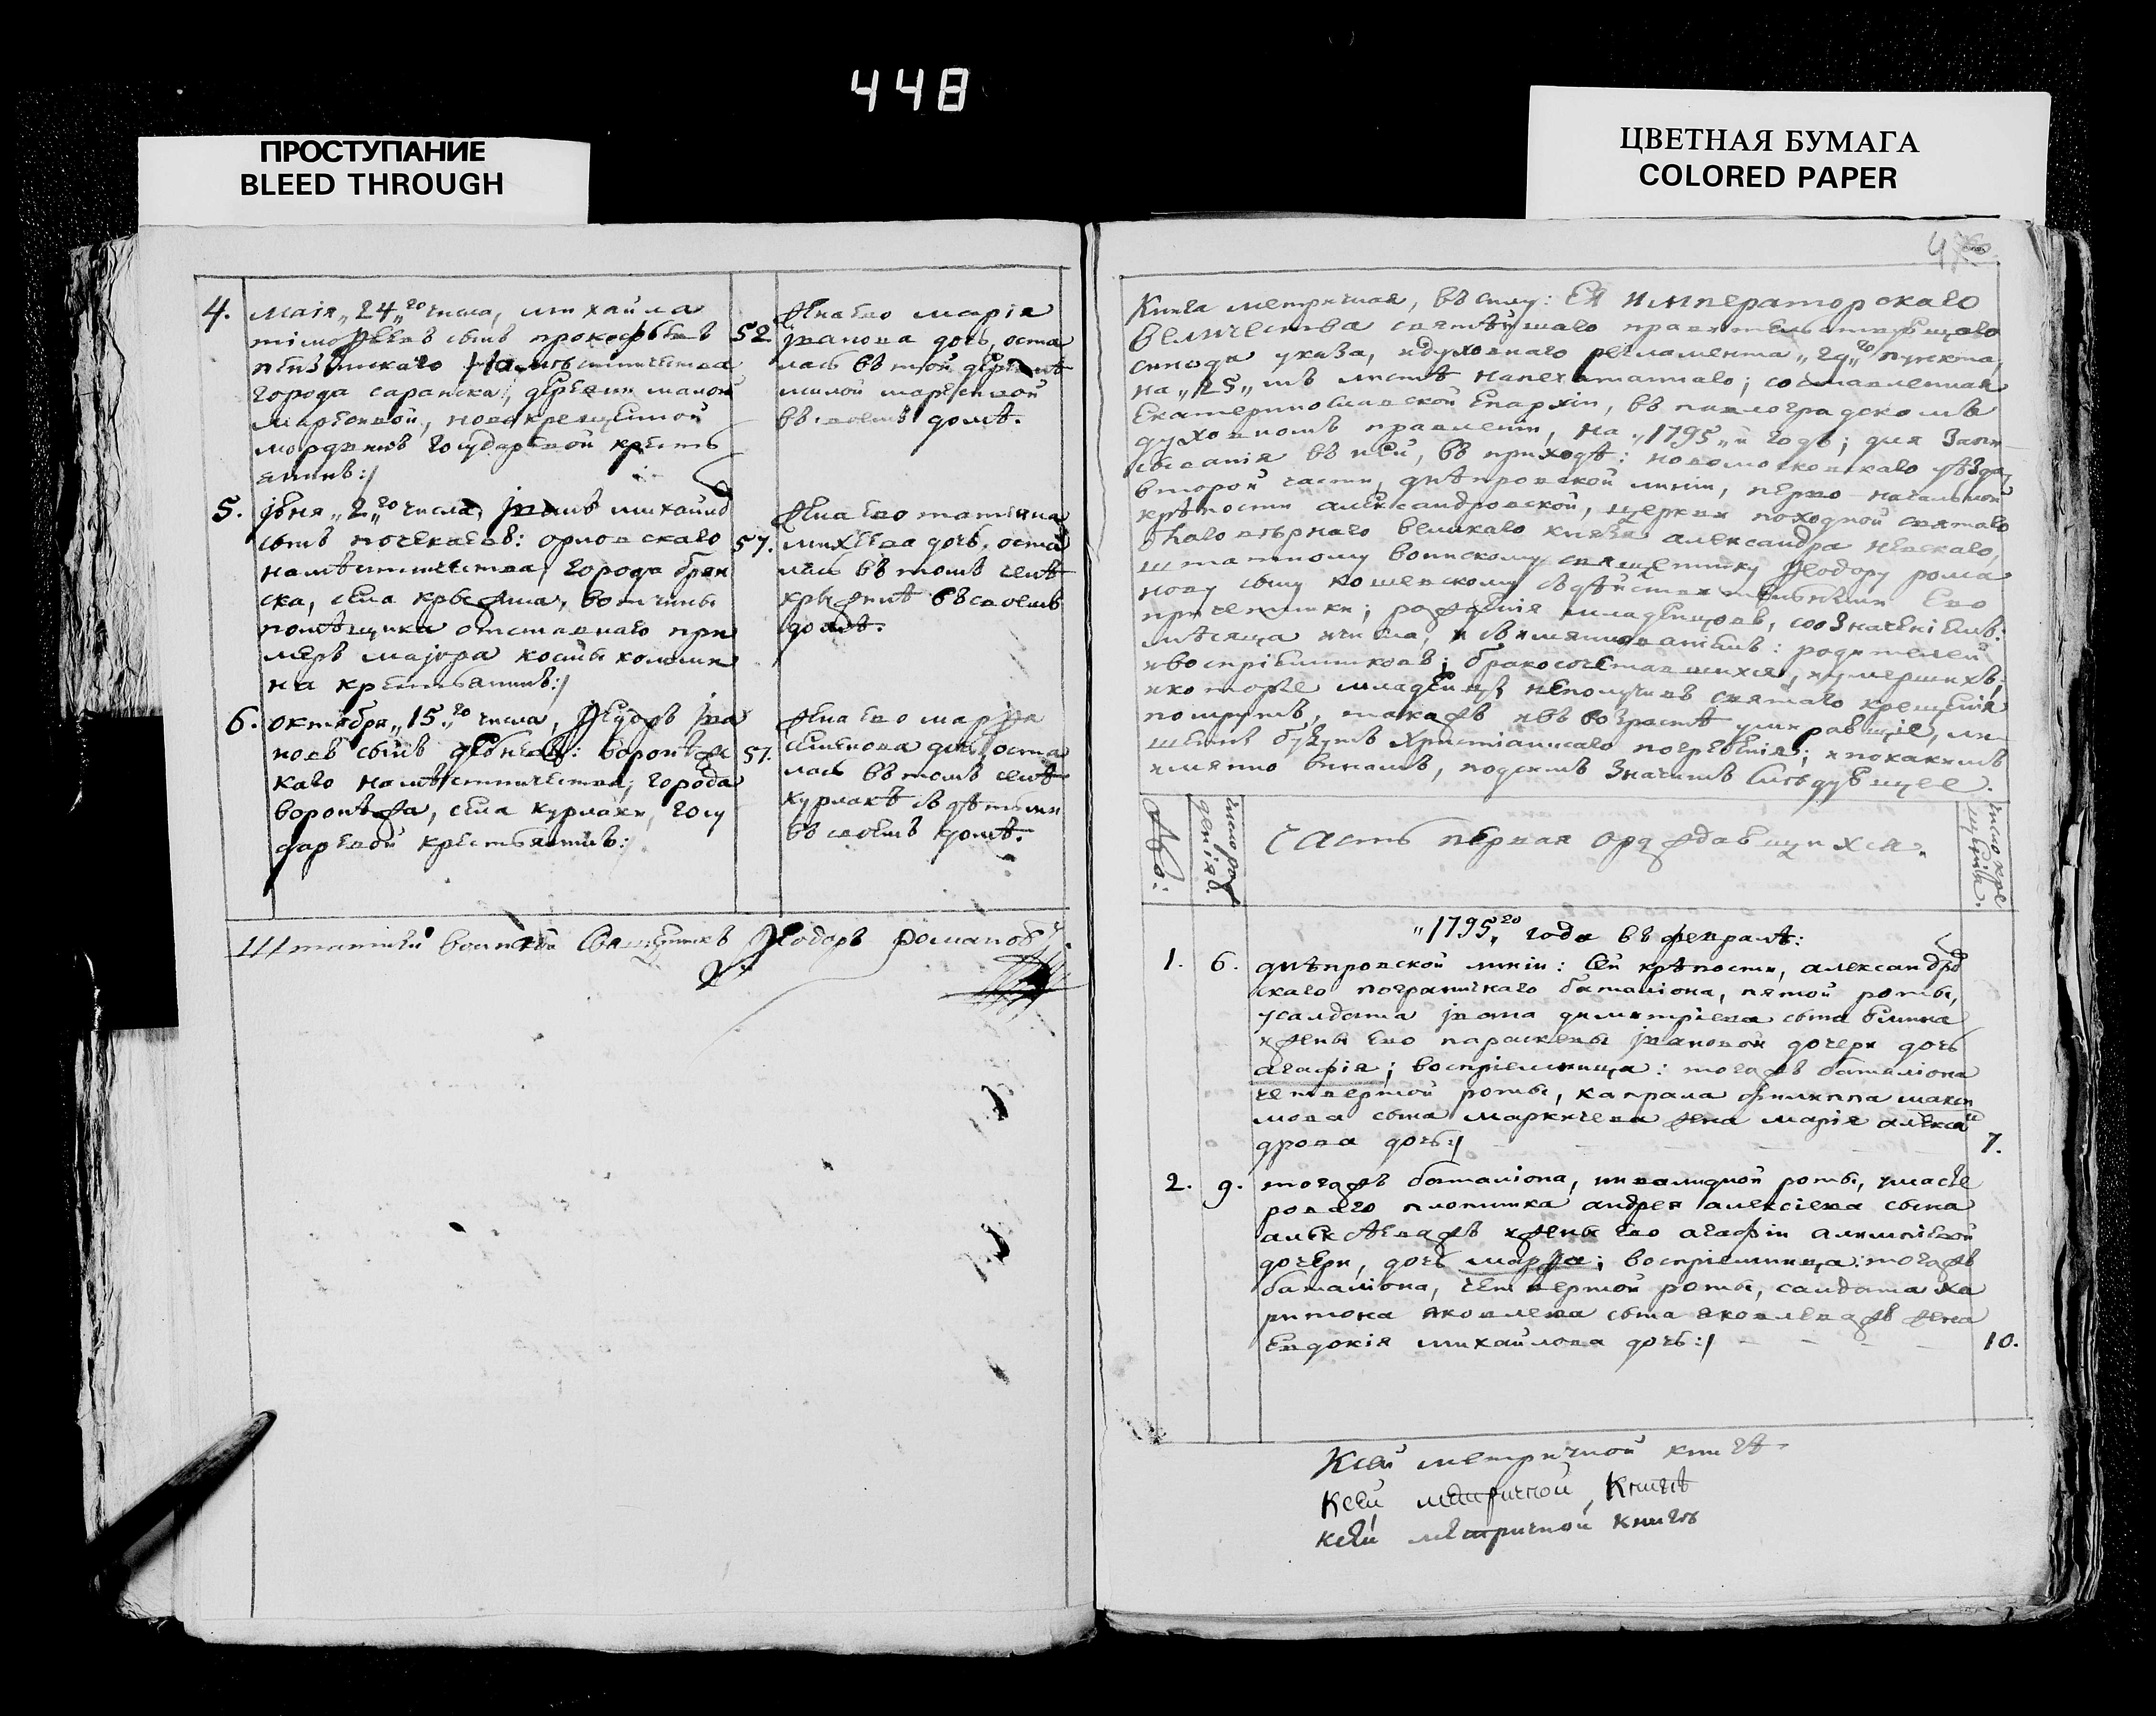 448
ПРОСТУПАНИЕ
BLEED THROUGH
ЦВЕТНАЯ БУМАГА
COLORED PAPER
4. маія „24„го числа, михайла
тімоѳеевъ сынъ прокофьевъ
пензѣнскаго намѣстничества
города саранска, деревни малой
марѳсевой, новокрещенной
мордвинъ государевой кресть
янинъ:/
52.
жена ево марія
іванова дочь, оста
лась въ той деревнѣ
малой
въ своемъ домѣ.
5. іюня „2„го числа, іванъ михайлд
сынъ почекаевъ: орловскаго
намѣстничества, города брян
ска, села крыжина, вотчины
помѣщика отставнаго при
меръ маіора косты коломн
на крестьянинъ:/
57.
жена ево татіяна
михѣева дочь, оста
лась въ томъ селѣ
крыжинѣ въ своемъ
домѣ.
6. октября „15„го числа, Ѳедоръ іва
новъ сынъ : воронѣжс
каго намѣстничества, города
воронѣжа, села курлаки, госу
даревой крестьянинъ:/
51.
жена ево марѳа
семенова дочь, оста
лась въ томъ селѣ
курлакѣ съ дѣтьми
въ своемъ домѣ.
Штатный воинскій Священникъ Ѳеодоръ романовъ
Книга метричная, въ силу: Ея императорскаго
величества святѣйшаго правительствующаго
синода указа, идуховнаго регламента „29„го пункта,
на „25„мъ листѣ напечатаннаго; составленная
Екатеринославской Епархіи, въ павлоградскомъ
духовномъ правленіи, на „1795„й годъ; для запи
сыванія въ ней, въ приходѣ: новомосковскаго уѣзда,
второй части, днѣпровской линіи, перво начальной
крѣпости александровской, церкви походной святаго
благовѣрнаго великаго князя александра невскаго,
штатному воинскому священнику Ѳеодору рома
нову сыну кошевскому съдѣйствительными Ево
причетники; рожденія младенцовъ, со означеніемъ:
мѣсяца ичисла, и имянинованіемъ: родителей
ивоспріемниковъ; бракосочетавшихся, иумершихъ;
икоторые младенцы неполучивъ святаго крещенія
помрутъ, такожъ ивъ возрастѣ умиравщіе, ли
шенны будутъ Христіанскаго погребенія; ипокакимъ
имянно винамъ, подсимъ значитъ слѣдующее.
№о:
число рож
денія.
Часть первая орождавшихся.
число кре
щенія.
„1795„го года въ февралѣ:
1. 6. днѣпровской линіи: Сей крѣпости, александро
скаго пограничнаго баталіона, пятой роты,
усалдата івана димитріева сына
ижены ево параскевы івановой дочери дочь
агафія; воспріемница: тогожъ баталіона
четвертой роты, капрала филиппа макси
мова сына маркичева жена марія алекса
дрова дочь:/ 7.
2. 9. тогожъ баталіона, инвалидной роты, умасте
роваго плотника андрея алексіева сына
алексѣеважъ ижены ево агафіи
дочери, дочь марѳа; воспріемница: тогожъ
баталіона, четвертой роты, салдата ха
ритона яковлева сына яковлеважъ жена
Евдокія михайлова дочь:/ 10.
Ксей метричной книгѣ
Ксей метричной Книгѣ
ксей метричной книгъ